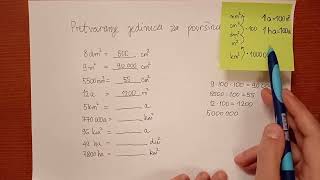 Pretvaranje jedinica za površinu
8 dm² = 800 cm²
9 m² = 90 000 cm²
5500 m² = 55 a
12 a = 1200 m²
5 km² = a
770000 a = km²
96 km² = a
49 ha = dm²
7800 ha = km²
mm²
cm²
dm² 100
m²
km²
1a=100m²
1ha=100a
9·100·100=90 000
5500:100=55
12·100=1200
5000000